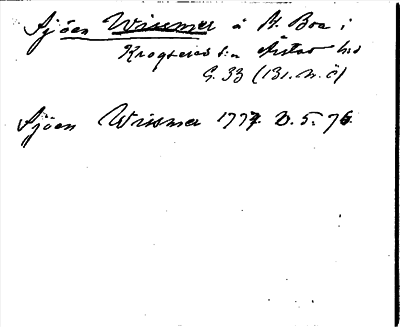 Sjöen Wissmer å St. Boa i
Krogsered s:n Årstad hd
G. 33 (131. N. Ö)
Sjöen Wissmer 1777. D. 5. 76.